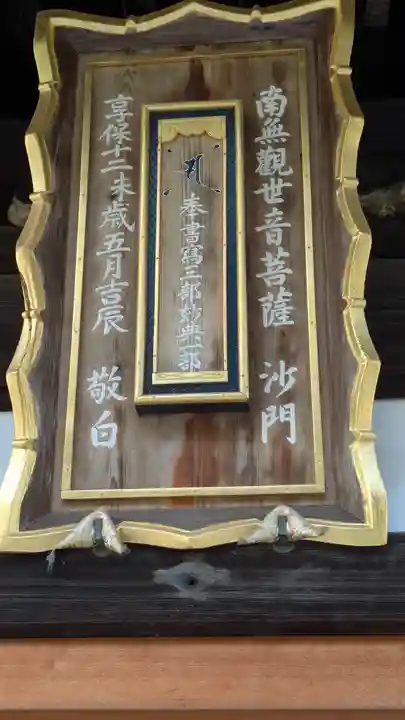 南無觀世音菩薩 沙門
奉書寫三部妙典一部
享保十二未歳五月吉辰 敬白